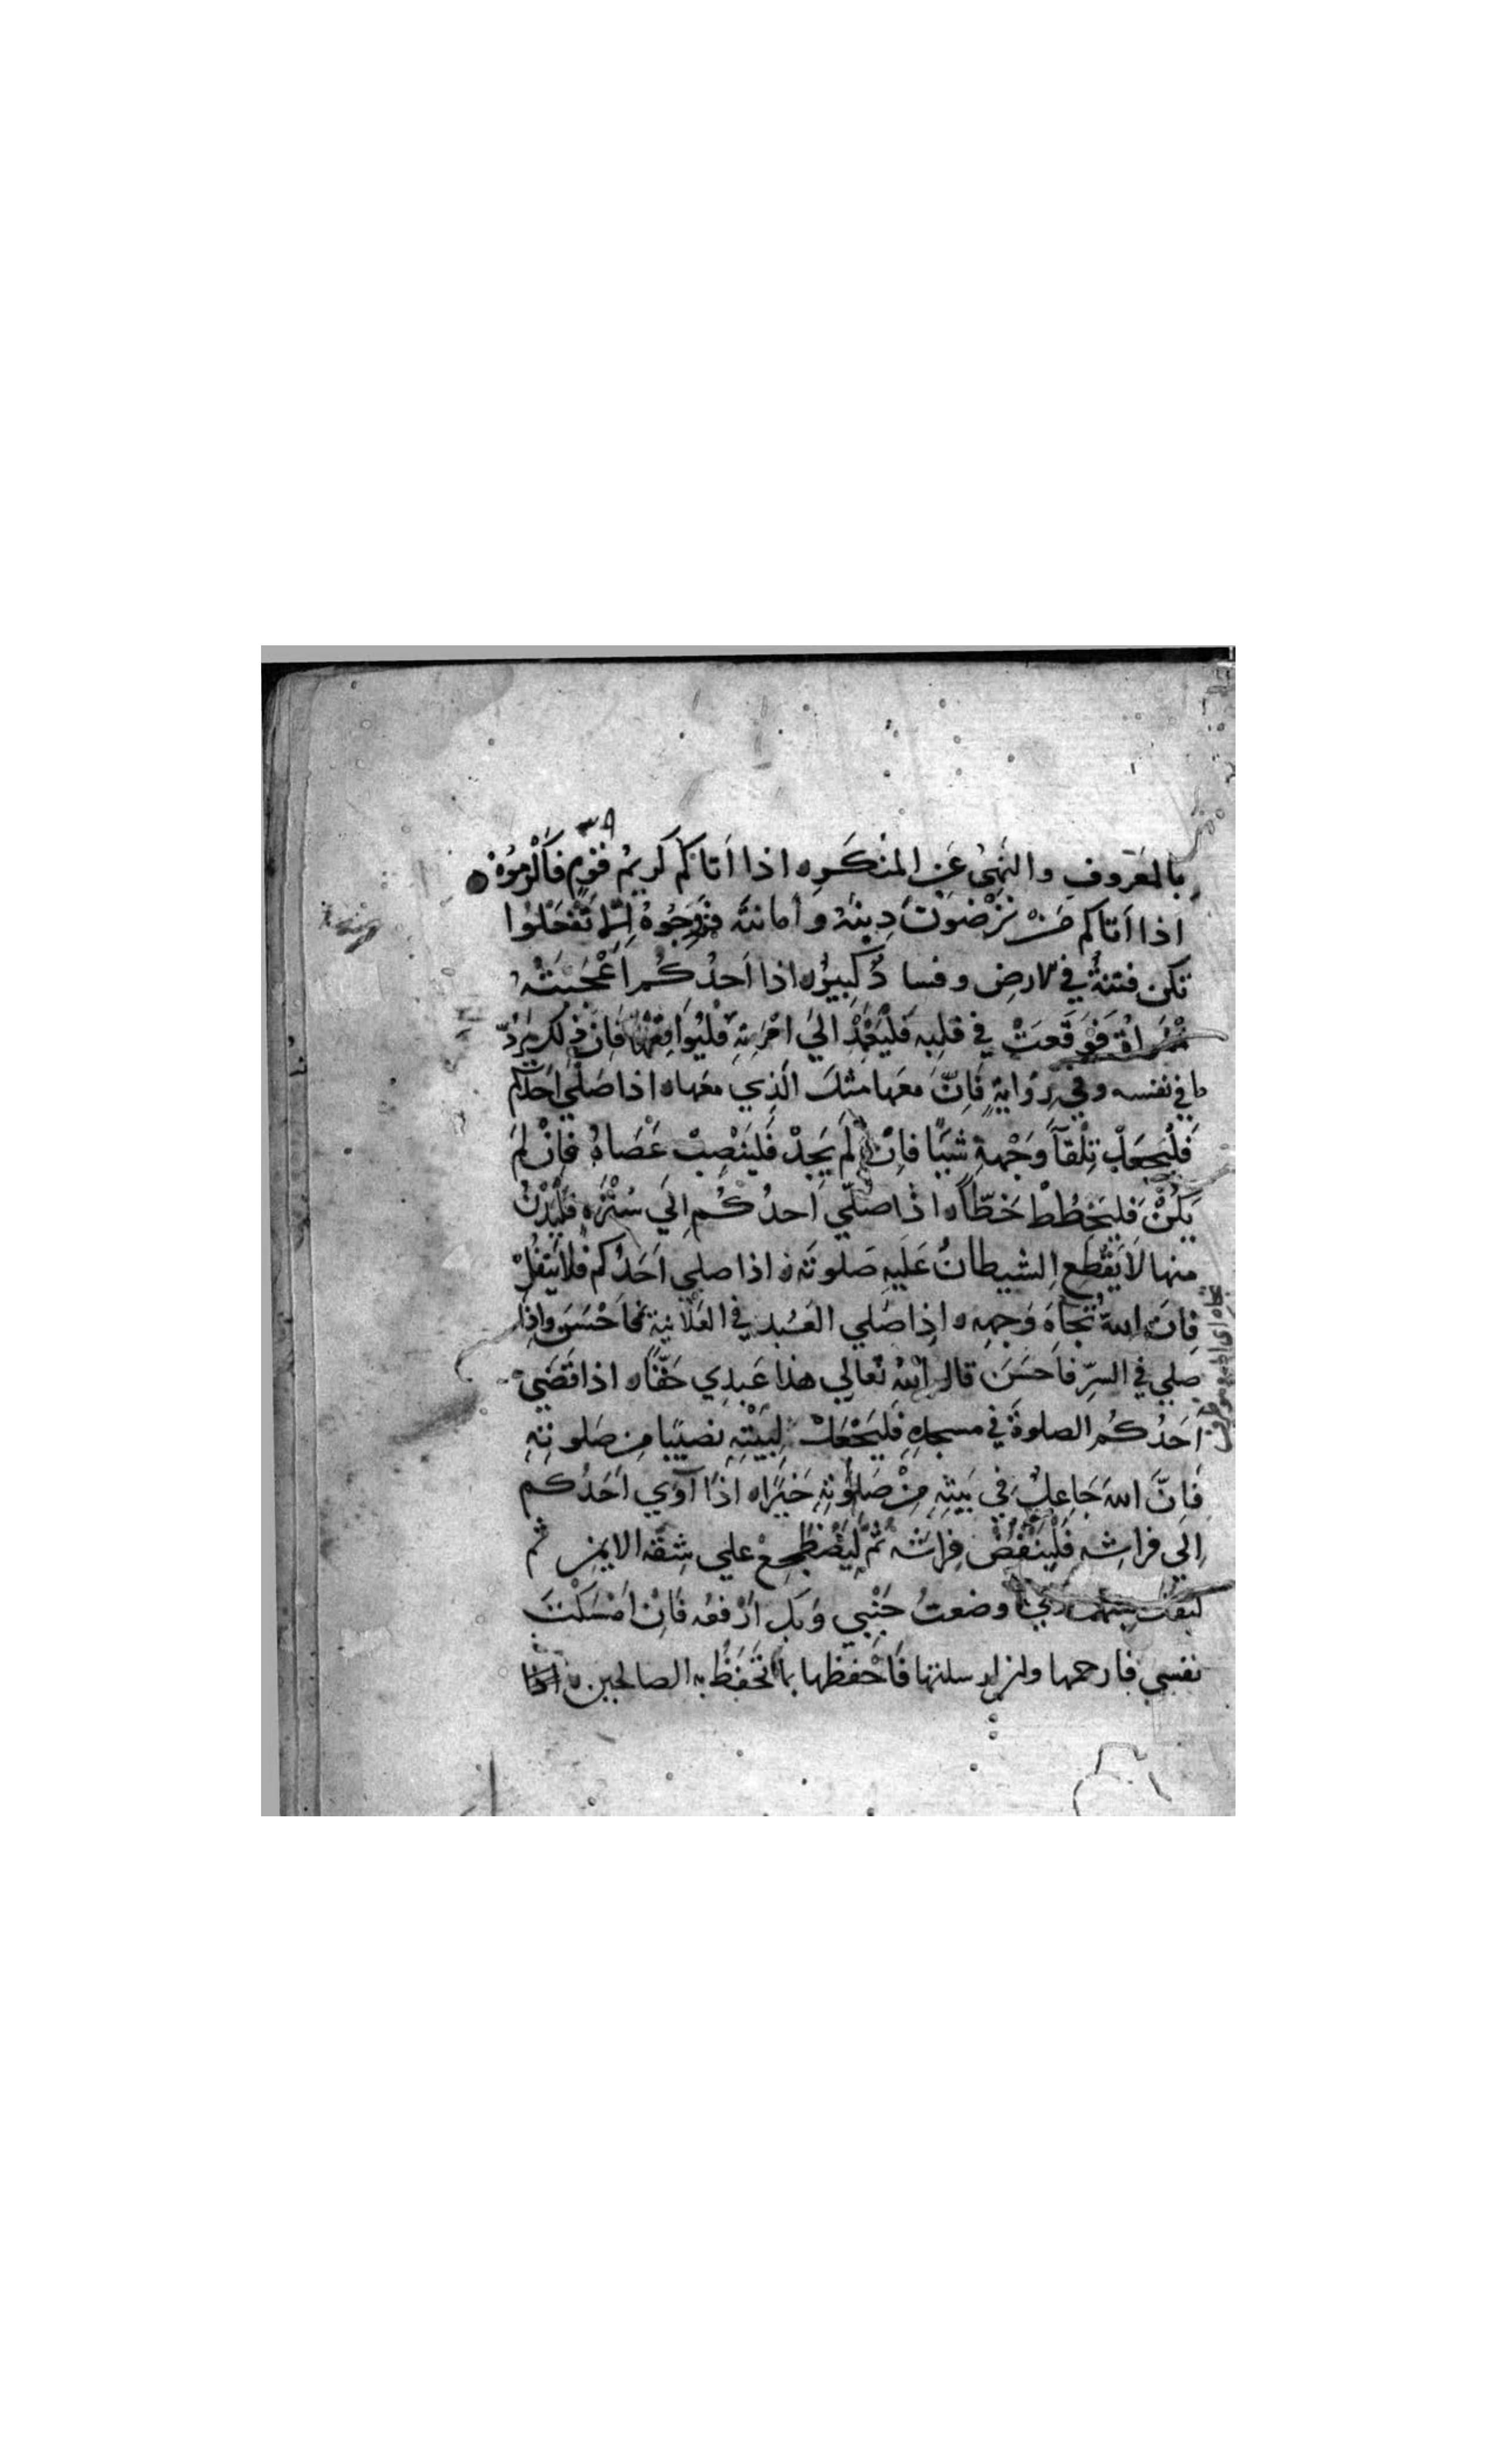 ٣٨
بِالمَعْروفِ والنَهىُ عَنِ المنكَرِ ه اذا اَتاكم كريمُ قَوْمٍ فَأكْرِمُوْه
اذا اَتاكم مَنْ تَرْضَوْنَ دِينَهُ وأمانتَه فزَوِّجُوهُ اِلَّا تَفْعَلُوا
تكن فتنةٌ في الارضِ وفسادٌ كبيرٌ ه اذا اَحدُكُم اَعْجَبَتْهُ
امْرَاةٌ فَوَقَعَتْ في قلبِهِ فَلْيَعْمِدْ الىَ امْرَاتِهِ فلْيُواقِعْها فَاِنَّ ذلك يَرُدُّ
ما في نفسه وفي رِوَايةٍ فَاِنَّ معَها مثلَ الَّذِي معَها ه اذا صَلَّي اَحدُكم
فَلْيَجعَلْ تِلْقَآَ وَجْهِهِ شَيًْا فاِنْ لَم يَجِدْ فَليَنْصِبْ عَصَاهُ فَاِنْ لَم
يَكُنْ فَليَخْطُطْ خَطًّا ه اذا صلّي اَحدُكُم اِلَي سُتْرَهٍ فَلْيَدْنُ
منها لَا يَقْطَعِ الشيطانُ عَلَيهِ صَلوتَه ه اذا صلي اَحَدُكم فلا يَتفُلْ
فاِنَّ اللهَ تُجَاهَ وَجهِهِ ه اِذا صَلي العَبْد في العَلَانيةِ فَاَحْسَنَ واِذَا
صلي في السِرِّ فاَحسَنَ قالَ اللهُ تعالي هذا عَبدِي حَقًّا ه اذا قَضَي
اَحَدُكُم الصلوةَ في مسجدِهِ فَليَجْعَلْ لِبَيْتِهِ نصيبًا مِن صَلوتِهِ
فَاِنَّ اللهَ جَاعِلٌ في بَيتِهِ مِنْ صَلوتِهِ خَيرًا ه اذا آوَي اَحَدُكم
اِلَي فراشِهِ فَلْيَنْفُضْ فِراشَه ثُمَّ لْيَضْطَجِعْ علي شِقِّه الايمن ثم
ليقلْ وضعتُ جَنْبي وَبِك ارْفعُه فَاِنْ اَمْسَكْتَ
نفسي فارحمها وان ارسلتها فَاَحْفظها بما تَحْفَظُ به الصالحين ه اذا